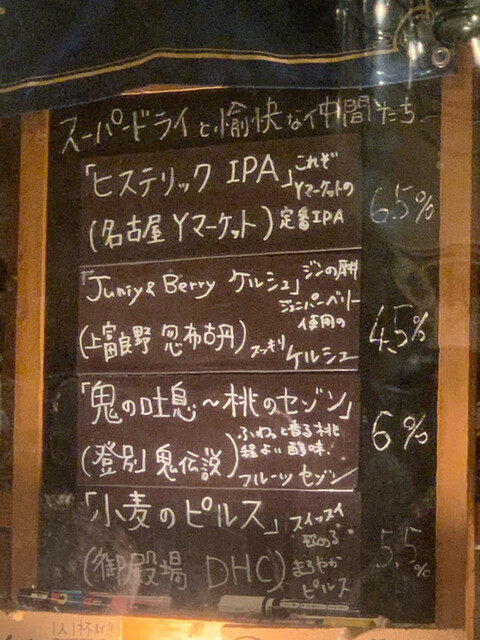 スーパードライと愉快な仲間たち
「ヒステリック IPA」これぞ
Yマーケットの
(名古屋 Yマーケット) 定番IPA
6.5%
「Juniy& Berry ケルシュ」ジンの原料
ジュニパーベリー
使用の
(上富良野 忽布古丹) スッキリ
ケルシュ
4.5%
「鬼の吐息〜桃のセゾン」
ふわっと香る桃
程よい酸味.
(登別 鬼伝説) フルーツセゾン
6%
「小麦のピルス」スイスイ
飲める
(御殿場 DHC) まろやか
ピルス
5.5%